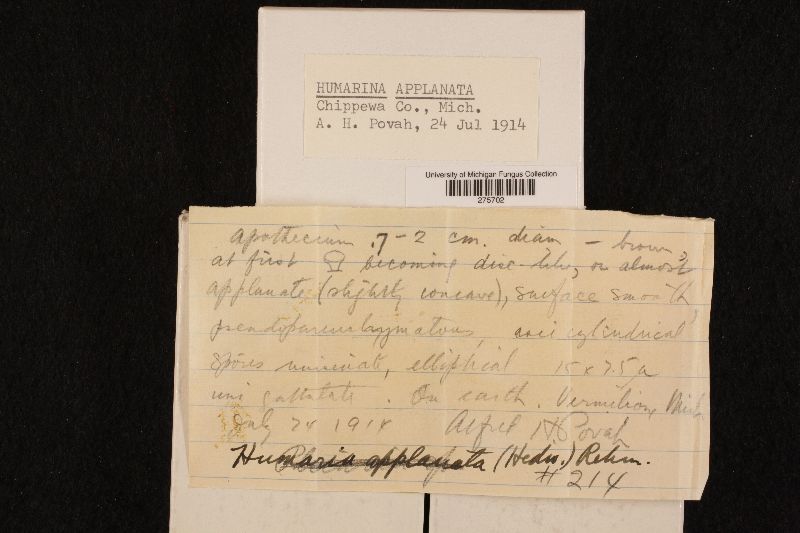 HUMARINA APPLANATA
Chippewa Co., Mich.
A. H. Povah, 24 Jul 1914
University of Michigan Fungus Collection
275702
apothecium .7-2 cm. diam - brown,
at first becoming disc-like, or almost
applanate (slightly concave), surface smooth,
pseudoparenchymatous, asci cylindrical
spores uniseriate, elliptical 15 x 7.5 µ
uni guttulate. On earth. Vermilion, Mich
July 24 1914 Alfred H. Povah
Humaria applanata (Hedw.) Rehm.
# 214